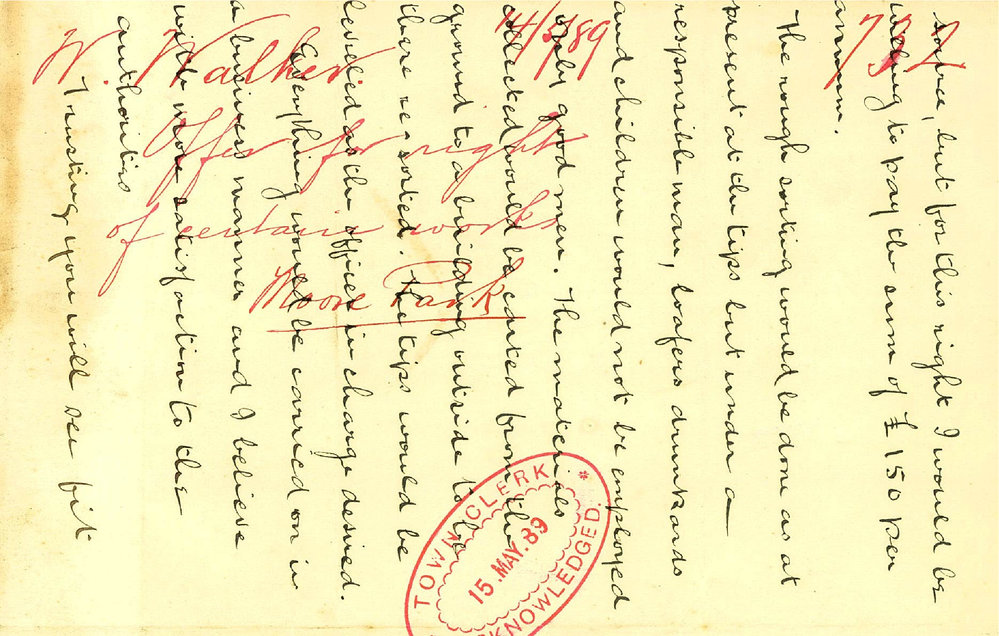 but for this right I would be
willing to pay the sum of £150 per
annum.
The rough sorting would be done as at
present at the tips but under a
responsible man, loafers drunkards
and children would not be employed
only good men. The materials
collected would be carted from the
ground to a building outside to be
there re-sorted. The tips would be
leveled as the officer in charge desired.
Everything would be carried on in
a business manner and I believe
with more satisfaction to the
authorities
Trusting you will see fit
14/5/89
W. Walker.
Offer for right
of certain works
Moore Park
TOWN CLERK
15. MAY. 89